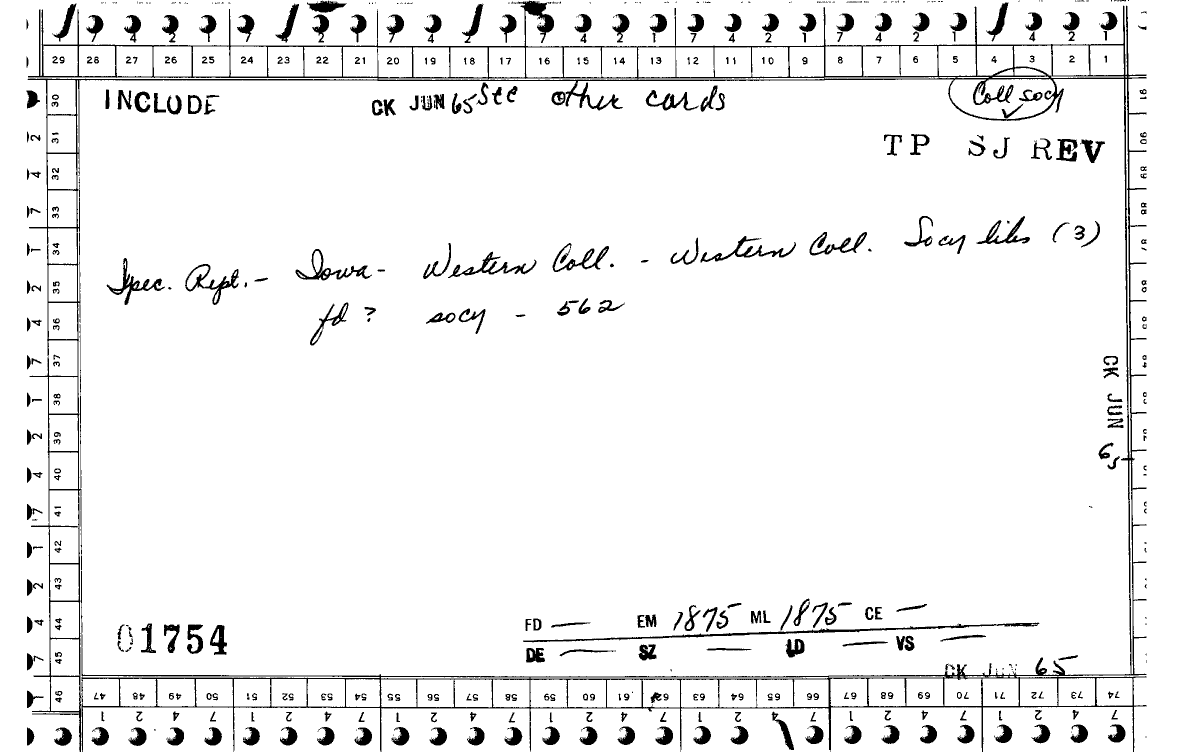 7 4 2 1 7 4 2 1 7 4 2 1 7 4 2 1 7 4 2 1 7 4 2 1 7 4 2 1
29 28 27 26 25 24 23 22 21 20 19 18 17 16 15 14 13 12 11 10 9 8 7 6 5 4 3 2 1
INCLUDE CK JUN 65 See other cards Coll socy
TP SJ REV
Spec. Rept. - Iowa - Western Coll. - Western Coll. Socy libs (3)
fd ? socy - 562
CK JUN 65
01754
FD — EM 1875 ML 1875 CE —
DE — SZ — LD — VS —
CK JUN 65
30
31
32
33
34
35
36
37
38
39
40
41
42
43
44
45
46
47 48 49 50 51 52 53 54 55 56 57 58 59 60 61 62 63 64 65 66 67 68 69 70 71 72 73 74
1 2 4 7 1 2 4 7 1 2 4 7 1 2 4 7 1 2 4 7 1 2 4 7 1 2 4 7